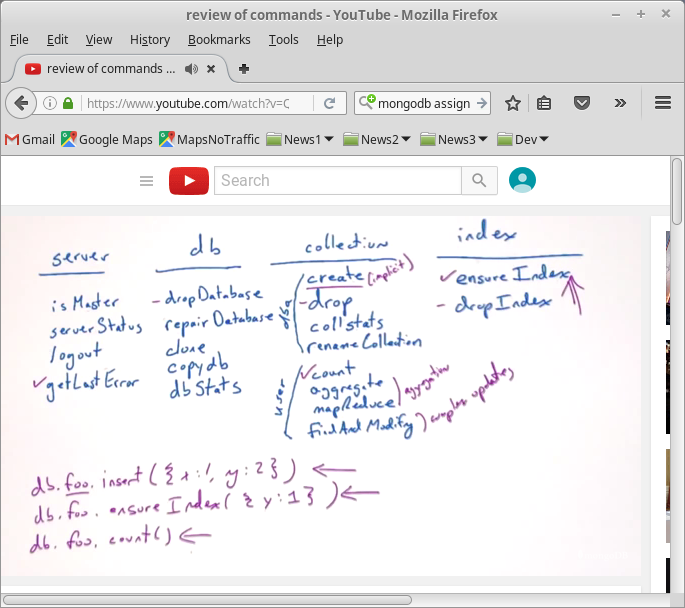 review of commands - YouTube - Mozilla Firefox
File Edit View History Bookmarks Tools Help
review of commands ...
https://www.youtube.com/watch?v=C
mongodb assign
Gmail Google Maps MapsNoTraffic News1 News2 News3 Dev
Search
server
isMaster
serverStatus
logout
getLastError
db
dropDatabase
repairDatabase
clone
copydb
dbStats
collection
create (implicit)
drop
collstats
renameCollection
count
aggregate
mapReduce
aggregation
findAndModify
complex updates
user
index
ensureIndex
dropIndex
db.foo.insert({x:1, y:2})
db.foo.ensureIndex({y:1})
db.foo.count()